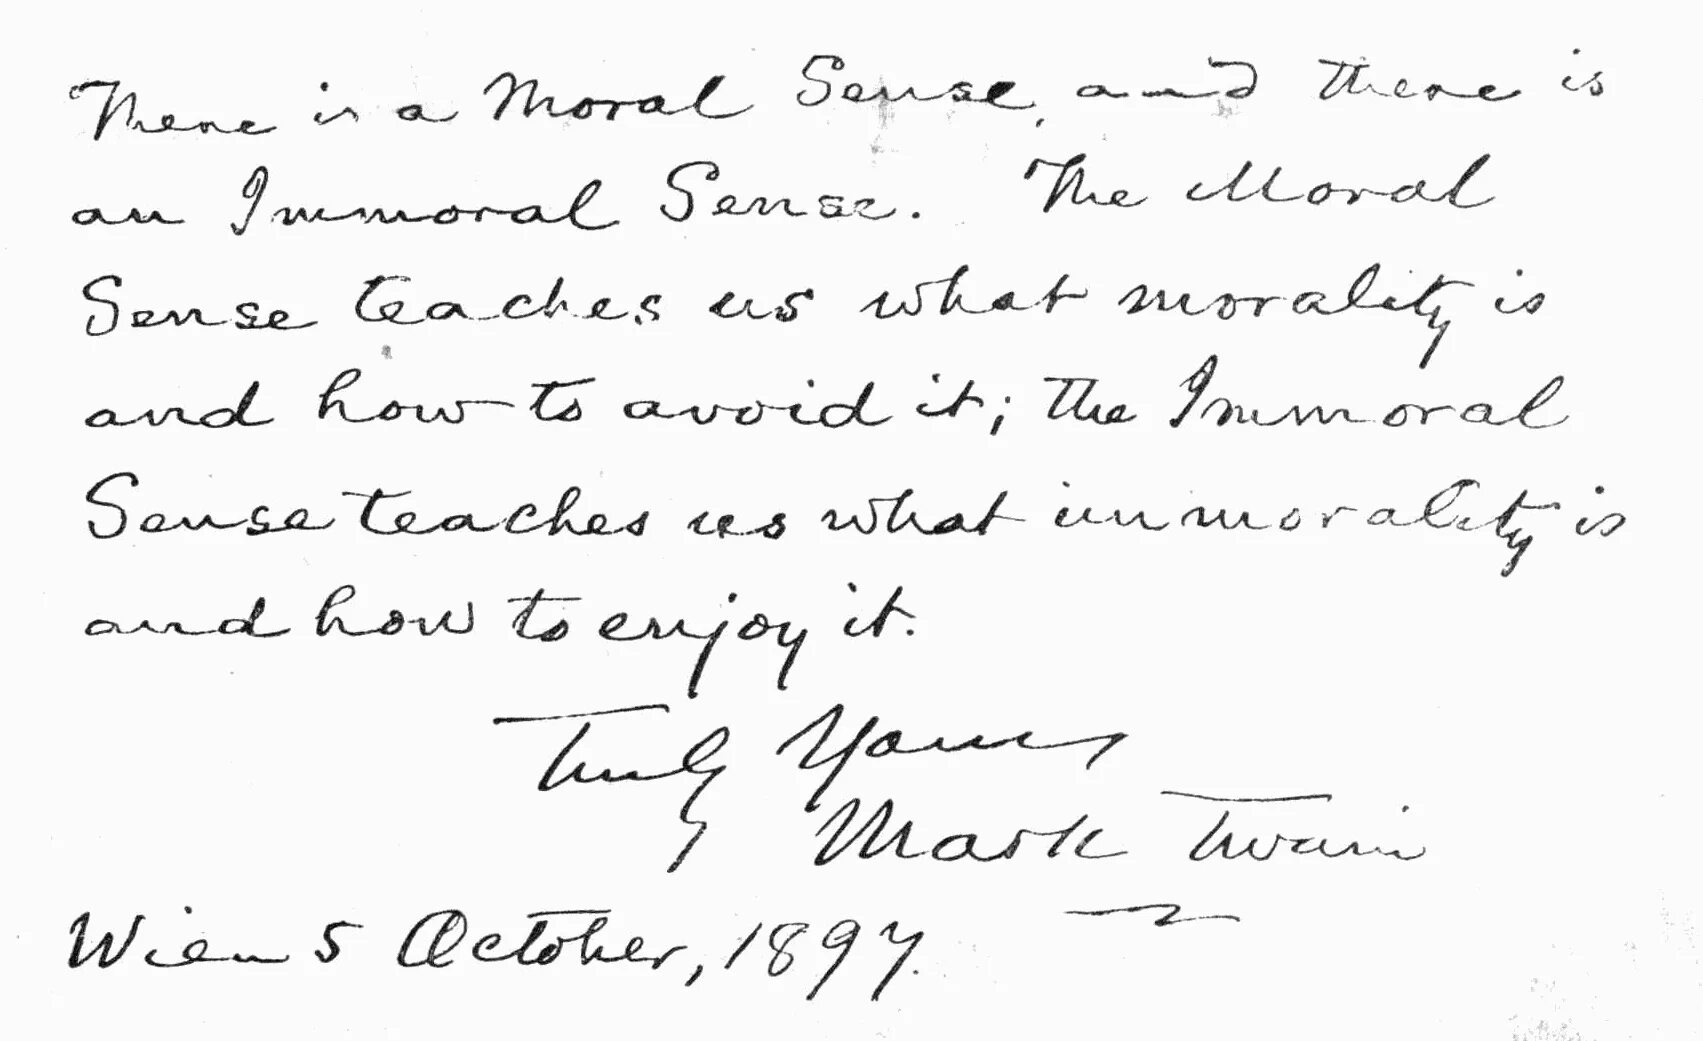 There is a Moral Sense, and there is
an Immoral Sense. The Moral
Sense teaches us what morality is
and how to avoid it; the Immoral
Sense teaches us what immorality is
and how to enjoy it.
Truly Yours
Mark Twain
Wien 5 October, 1897.